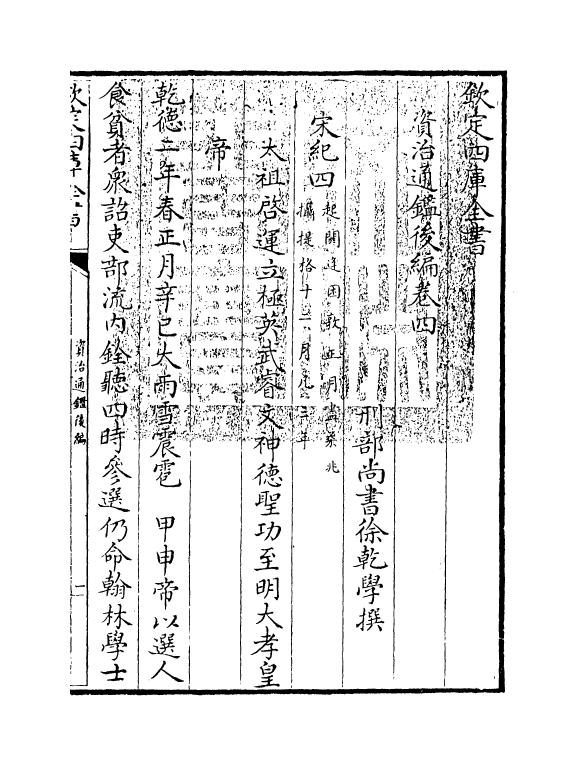 欽定四庫全書
資治通鑑後編卷四
刑部尚書徐乾學撰
宋紀四
起閼逢困敦正月盡柔兆
攝提格十二月凡三年
太祖啓運立極英武睿文神德聖功至明大孝皇
帝
乾德二年春正月辛巳大雨雪震雹 甲申帝以選人
食貧者衆詔吏部流内銓聽四時參選仍命翰林學士
欽定四庫全書
資治通鑑後編
一